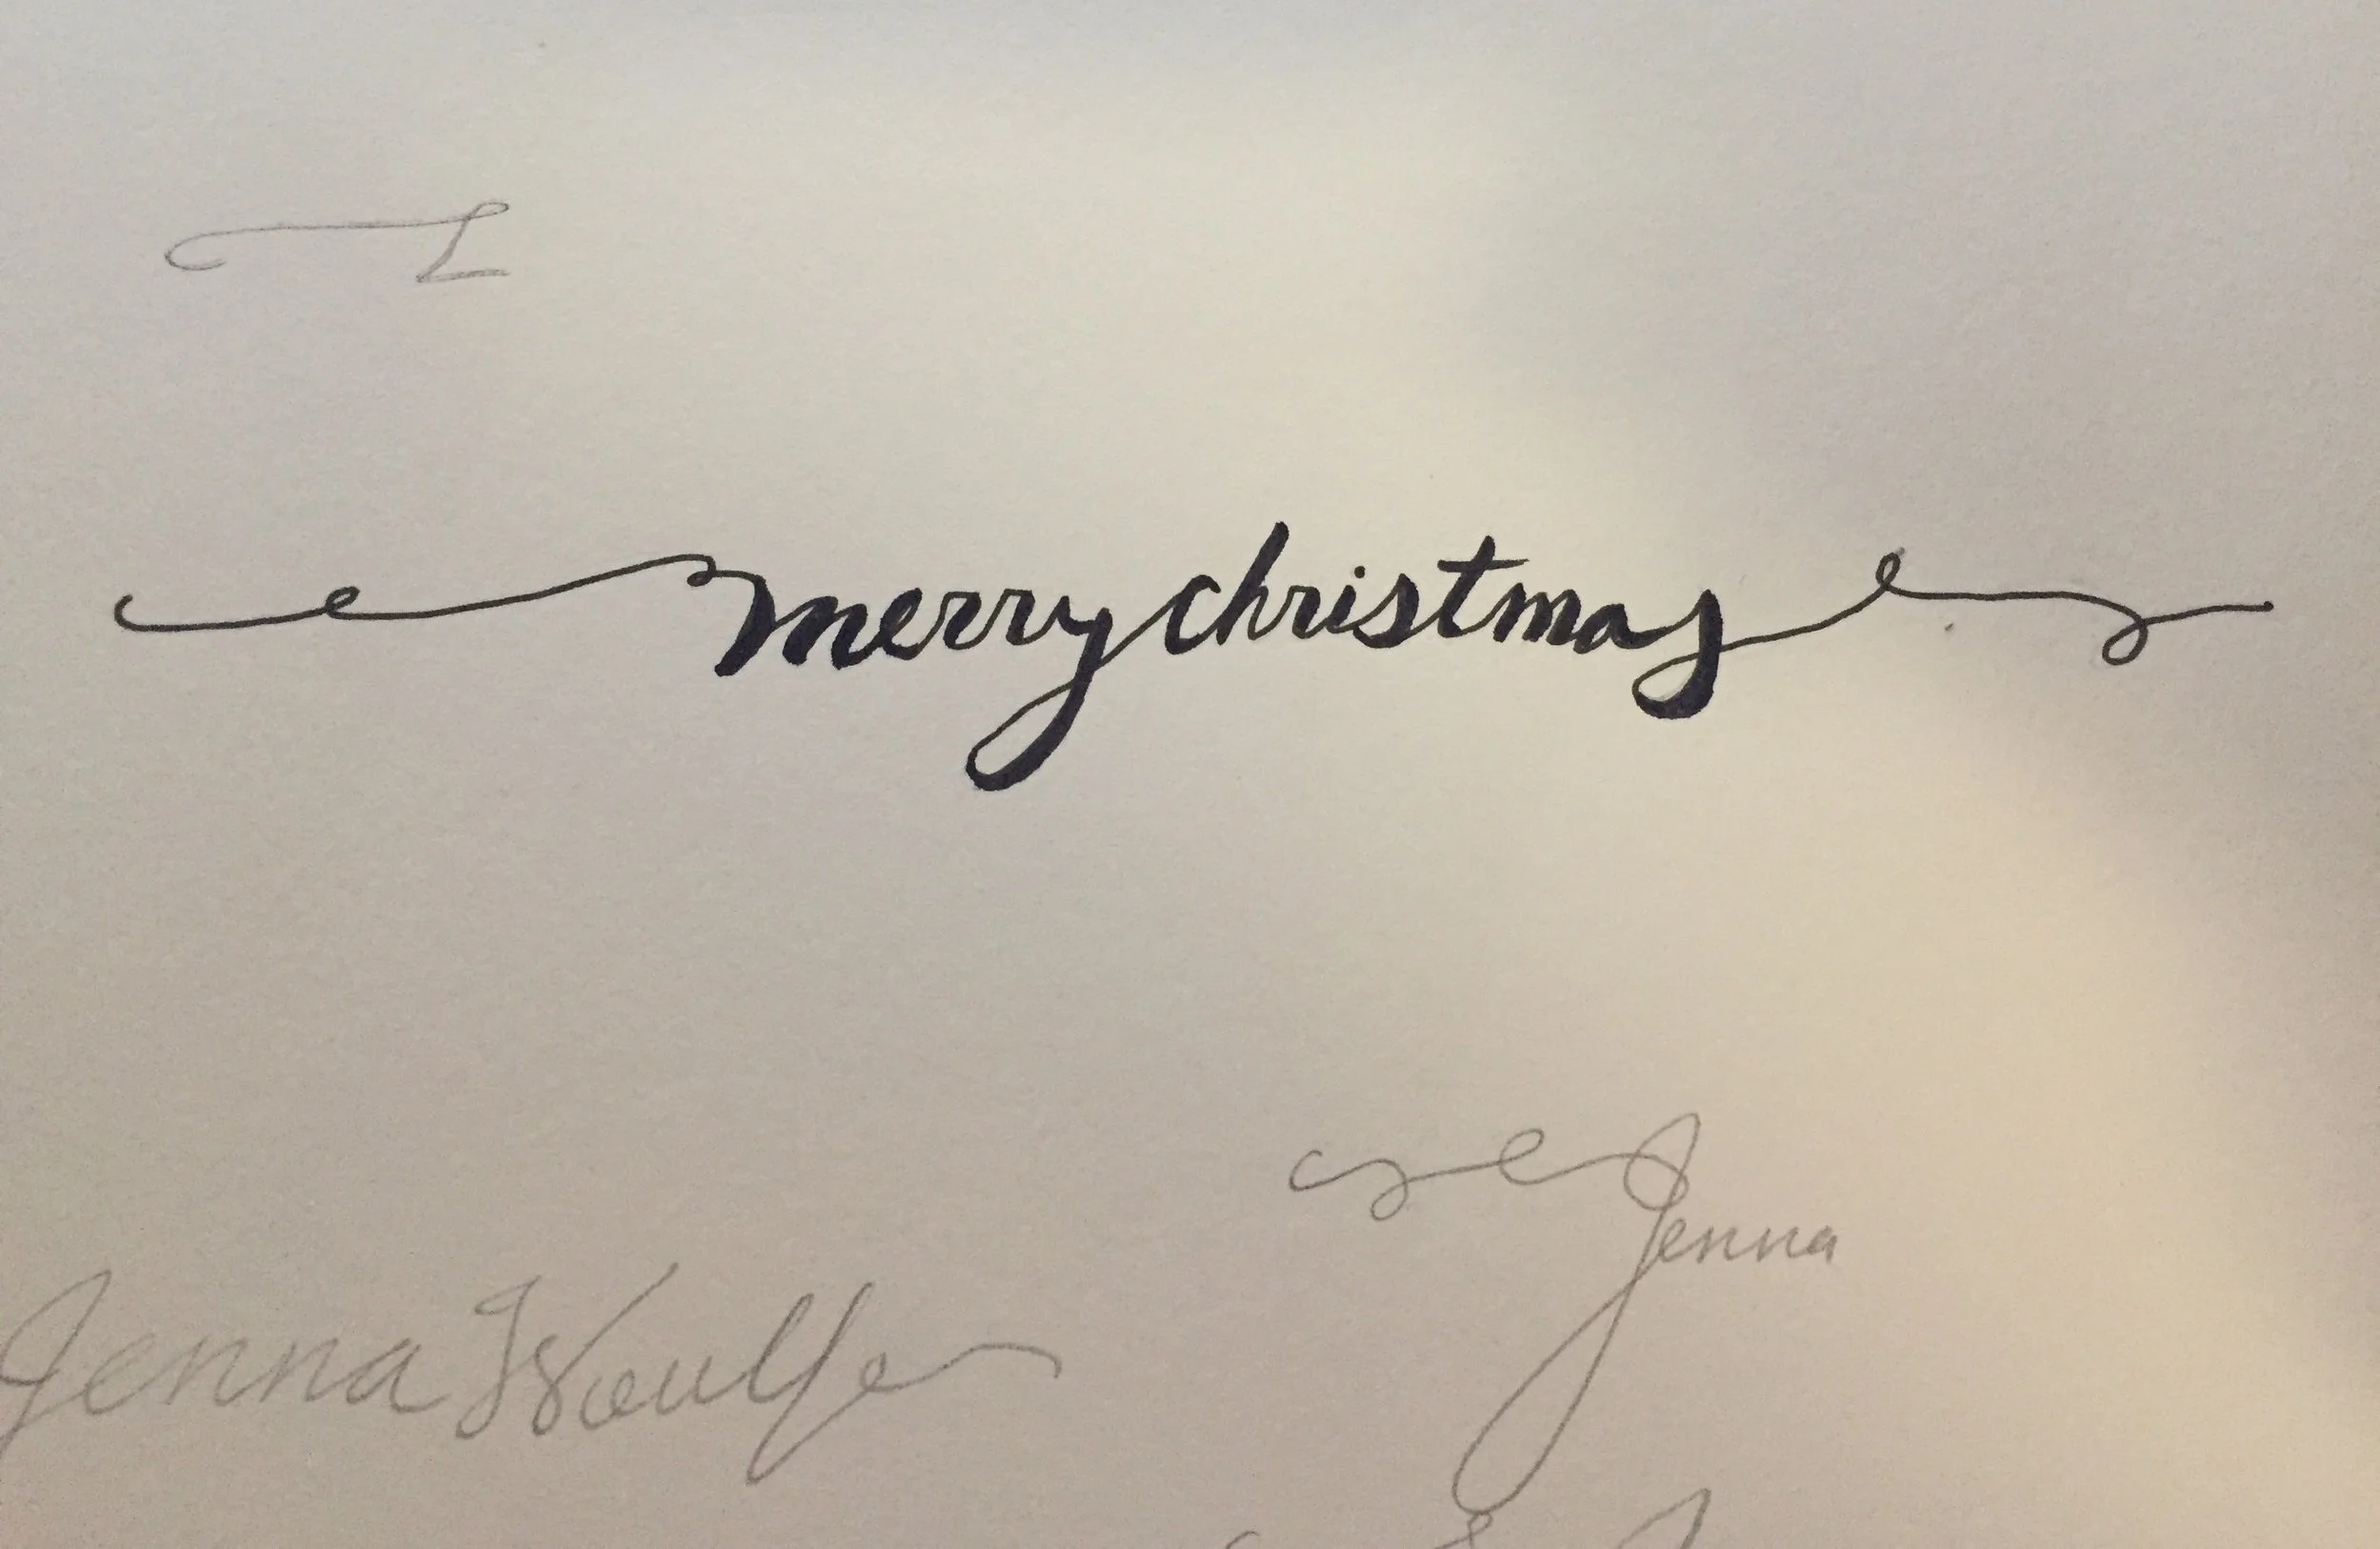 merry christmas
Jenna
Jenna Woulfe